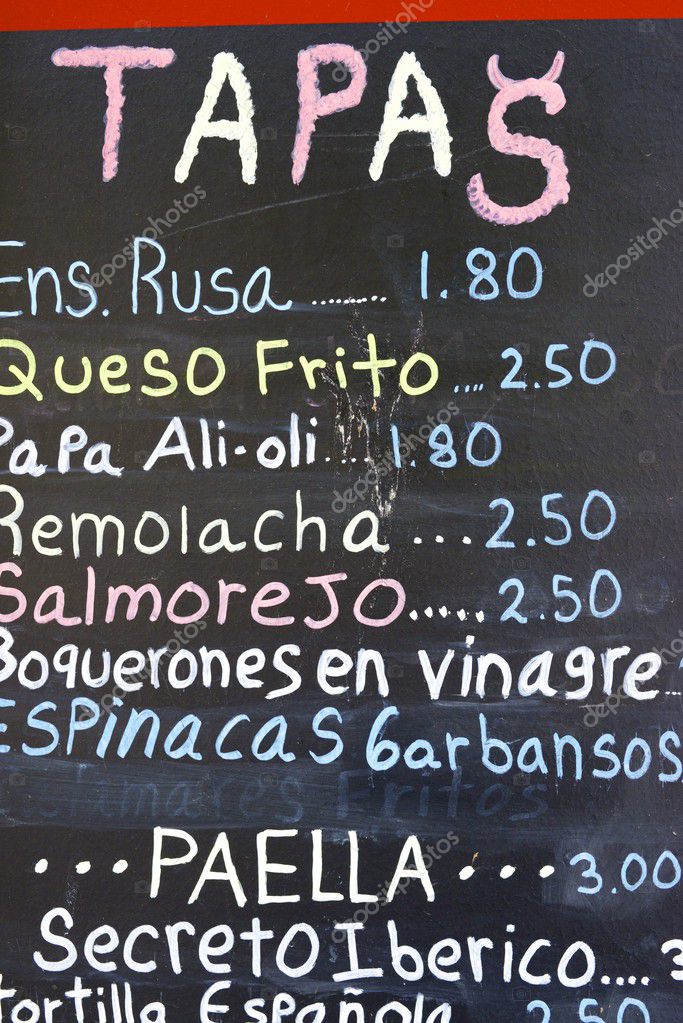 TAPAS
Ens. Rusa ........ 1.80
Queso Frito .... 2.50
Papa Ali-oli.... 1.80
Remolacha ... 2.50
SalmoreJo...... 2.50
Boquerones en vinagre..
ESPINACAS Garbansos
Calamares Fritos
...PAELLA... 3.00
Secreto Iberico.... 3
tortilla Española 2.50